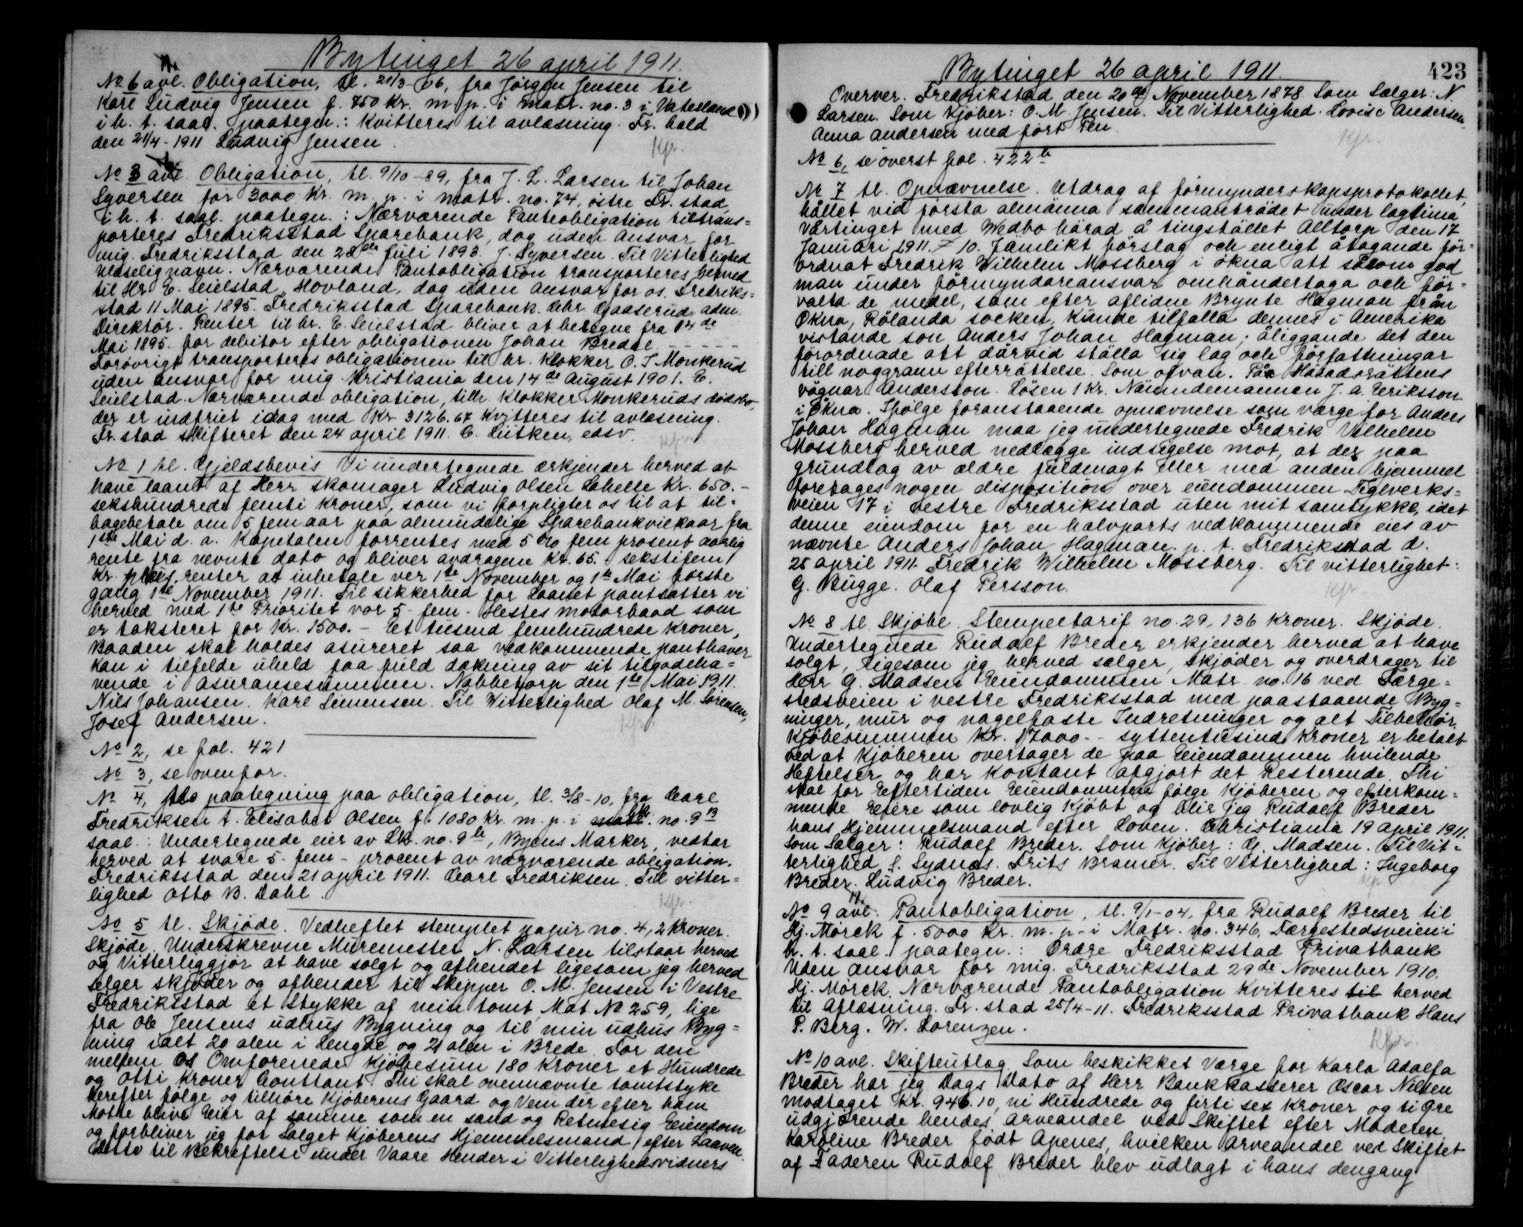 Bytinget 26 april 1911.
No 6 avl. Obligation, tl. 21/3-06, fra Jörgen Jensen til
Karl Ludvig Jensen f. 750 kr. m. p. i matr. no. 3 i Vaterland
i h. t. saal. paategn.: Kvitteres til avlæsning. Fr. hald
den 21/4-1911 Ludvig Jensen.
Kfr.
No 3 avl. Obligation, tl. 9/10-89, fra J. L. Larsen til Johan
Syversen for 3000 Kr. m. p. i matr. no. 74, östre Fr. stad
i h. t. saal. paategn.: Nærværende Panteobligation tiltrans=
porteres Fredriksstad Sparebank, dog uden Ansvar for
mig. Fredriksstad den 28de Juli 1893. J. Syversen. Til Vitterlighed
Ulæselig navn. Nærværende Pantobligation transporteres herved
til Hr. E. Seielstad, Hovland, dog uden ansvar for os. Fredriks=
stad 11 Mai 1895. Fredriksstad Sparebank. Chr. Gaaserud adm.
Direktör. Renter til hr. E. Seielstad bliver at beregne fra 14de
Mai 1895. for debitor efter obligationen Johan Bredal
Forövrigt transporteres obligationen til hr. Klokker O. J. Monkerud
uden ansvar for mig Kristiania den 14de August 1901. E.
Seielstad. Nærværende obligation, tilh. Klokker Monkeruds dödsbo,
der er indfriet idag med kr. 3126.67 kvitteres til avlæsning.
Fr. stad Skifteret den 24 april 1911. C. Lütken, edsv.
Kfr.
No 1 tl. Gjeldsbevis Vi undertegnede erkjender herved at
have laant af Herr skomager Ludvig Olsen Labelle Kr. 650.-
sekshundrede femti kroner, som vi forpligter os til at til=
bagebetale om 5 fem aar paa almindelige Sparebankvilkaar fra
1ste Mai d. a. Kapitalen forrentes med 5 0/0 fem prosent aarlig
rente fra nevnte dato og bliver avdragene Kr. 65. sekstifem
kr. plus renter at inbetale ver 1ste November og 1ste Mai förste
gang 1ste November 1911. Til sikkerhed for Laanet pantsætter vi
herved med 1ste Prioritet vor 5- fem- Hestes motorbaad som
er taksteret for Kr. 1500.- Et tusend femhundrede Kroner,
Baaden skal holdes asureret saa vedkommende panthaver
kan i tilfelde uheld faa fuld dækning av sit tilgodeha=
vende i asuransesummen. Nabbetorp den 1ste Mai 1911.
Nils Johansen. Karl Simensen. Til Vitterlighed Olaf M. Sörensen,
Josef Andersen.
Kfr.
No 2, se fol. 421
No 3, se ovenfor.
No 4, paategning paa obligation, tl. 3/8-10, fra Carl
Fredriksen t. Elisabet Olsen f. 1080 kr. m. p. i no. 9B
saal.: Undertegnede eier av Lb. no. 9b, Byens Marker, vedtar
herved at svare 5- fem- procent av nærværende obligation.
Fredriksstad den 21 april 1911. Carl Fredriksen. Till vitter=
lighed Otto B. Dahl.
Kfr.
No 5 tl. Skjöde. Vedheftet stemplet papir no. 4, 2 Kroner.
Skjöde, Underskrevne Murmester N. Larsen tilstaar herved
og vitterliggjør at have solgt og afhendet ligesom jeg herved
sælger skjöder og afhender til Skipper O. M. Jensen i Vestre
Fredrikstad et Stykke af min tomt Mat. No 259, lige
fra Ole Jensens udhus Bygning og til min udhus Byg=
ning i alt 20 alen i Lengde og 21 alen i Brede. For den
mellem os Omforenede kjöbesum 180 Kroner et Hundrede
og Otti Kroner Conttant. Thi skal ovennævnte tomtstyke
Derefter fölge og tilhöre Kjöberens Gaard og Vem der efter ham
Motte blive Eier af samme som en sand og Retmesig Eiendom
og forbliver jeg for Salget Kjöberens Hjemmelsmand efter Laaven
Dette til Bekreftelse under Vaare Hender i Vitterlighedsvidners
Bytinget 26 april 1911.
423
Overver. Fredrikstad den 20de November 1878 Som Sælger: N.
Larsen. Som kjöber: O. M. Jensen. Til Vitterlighed. Lovise Andersen,
Anna Andersen med fört Pen.
Kfr.
No 6, se överst fol. 422b
No 7 tl. Opnævnelse. Utdrag af förmynderskapsprotokollet,
hållet vid första almänna sammanträdet under lagtima
Vårtinget med Vedbo härad å tingstället Alltorp den 17
Januari 1911. § 10. Jämlikt förslag och enligt åtagande för=
ordnat Fredrik Wilhelm Mossberg i Ökna att såsom god
man under förmyndareansvar omhändertaga och för=
valta de medel, som efter aflidne Brynte Hagman från
Ökna, Rölanda socken, kunde tilfalla dennes i Amerika
vistande son Anders Johan Hagman; åliggande det den
förordnade att därvid ställa sig lag och författningar
till noggrann efterrättelse. Som ofvan. På Häradsrättens
vägnar Andersson. Lösen 1 Kr. Nämndemannen J. A. Eriksson
i Ökna. Ifölge foranstaaende opnævnelse som værge for Anders
Johan Hagman maa jeg undertegnede Fredrik Vilhelm
Mossberg herved nedlægge indsigelse mot, at der paa
grundlag av ældre fuldmagt eller med anden hjemmel
foretages nogen disposition over eiendommen Teglverks=
veien 17 i Vestre Fredriksstad uten mit samtykke, idet
denne eiendom for en halvparts vedkommende eies av
nævnte Anders Johan Hagman. p. t. Fredrikstad d.
25 april 1911 Fredrik Wilhelm Mossberg. Til vitterlighet:
G. Bugge. Olaf Persson.
Kfr
No 8 tl. Skjöte. Stempeltarif no. 29, 136 Kroner. Skjöde.
Undertegnede Rudolf Breder erkjender herved at have
solgt, ligesom jeg herved sælger, skjöder og overdrager til
Herr G. Madsen Eiendommen Matr. no. 16 ved Færge=
stedsveien i vestre Fredriksstad med paastaaende Byg=
ninger, mur og nagelfaste Indretninger og alt Tilbehör.
Kjöbesummen Kr. 17000.- syttentusind Kroner er betalt
ved at Kjöberen overtager de paa Eiendommen hvilende
Heftelser og har kontant afgjort det Resterende. Thi
skal for Eftertiden Eiendommen fölge Kjöberen og efterkom=
mende Eiere som lovlig Kjöbt og blir jeg Rudolf Breder
hans Hjemmelsmand efter Loven. Christiania 19 april 1911.
Som Sælger: Rudolf Breder. Som kjöber: G. Madsen. Til Vit=
terlighed S. Sydnes. Frits Bramer. Til Vitterlighed: Ingeborg
Breder. Ludvig Breder.
Kfr
No 9 avl. Pantobligation, tl. 9/1-04, fra Rudolf Breder til
Hj. Mörck f. 5000 kr. m. p. i Matr. no. 346, Færgestedsveien i
h. t. saal. paategn.: Ordre Fredriksstad Privatbank
Uden ansvar for mig. Fredriksstad 29de November 1910.
Hj. Mörck. Nærværende Pantobligation Kvitteres til herved
til Aflæsning. Fr. stad 25/4-11. Fredriksstad Privatbank Hans
P. Berg. W. Lorenzen.
Kfr.
No 10 avl. Skifteutlæg. Som beskikket Værge for Karla Adolfa
Breder har jeg Dags Dato af Herr Bankkasserer Oscar Nilsen
modtaget Kr. 946.10, ni Hundrede og firti sex Kroner og ti Øre
udgjørende hendes Arveandel ved Skiftet efter Moderen
Karoline Breder födt Apenes, hvilken Arveandel ved Skiftet
af Faderen Rudolf Breder blev udlagt i hans dengang